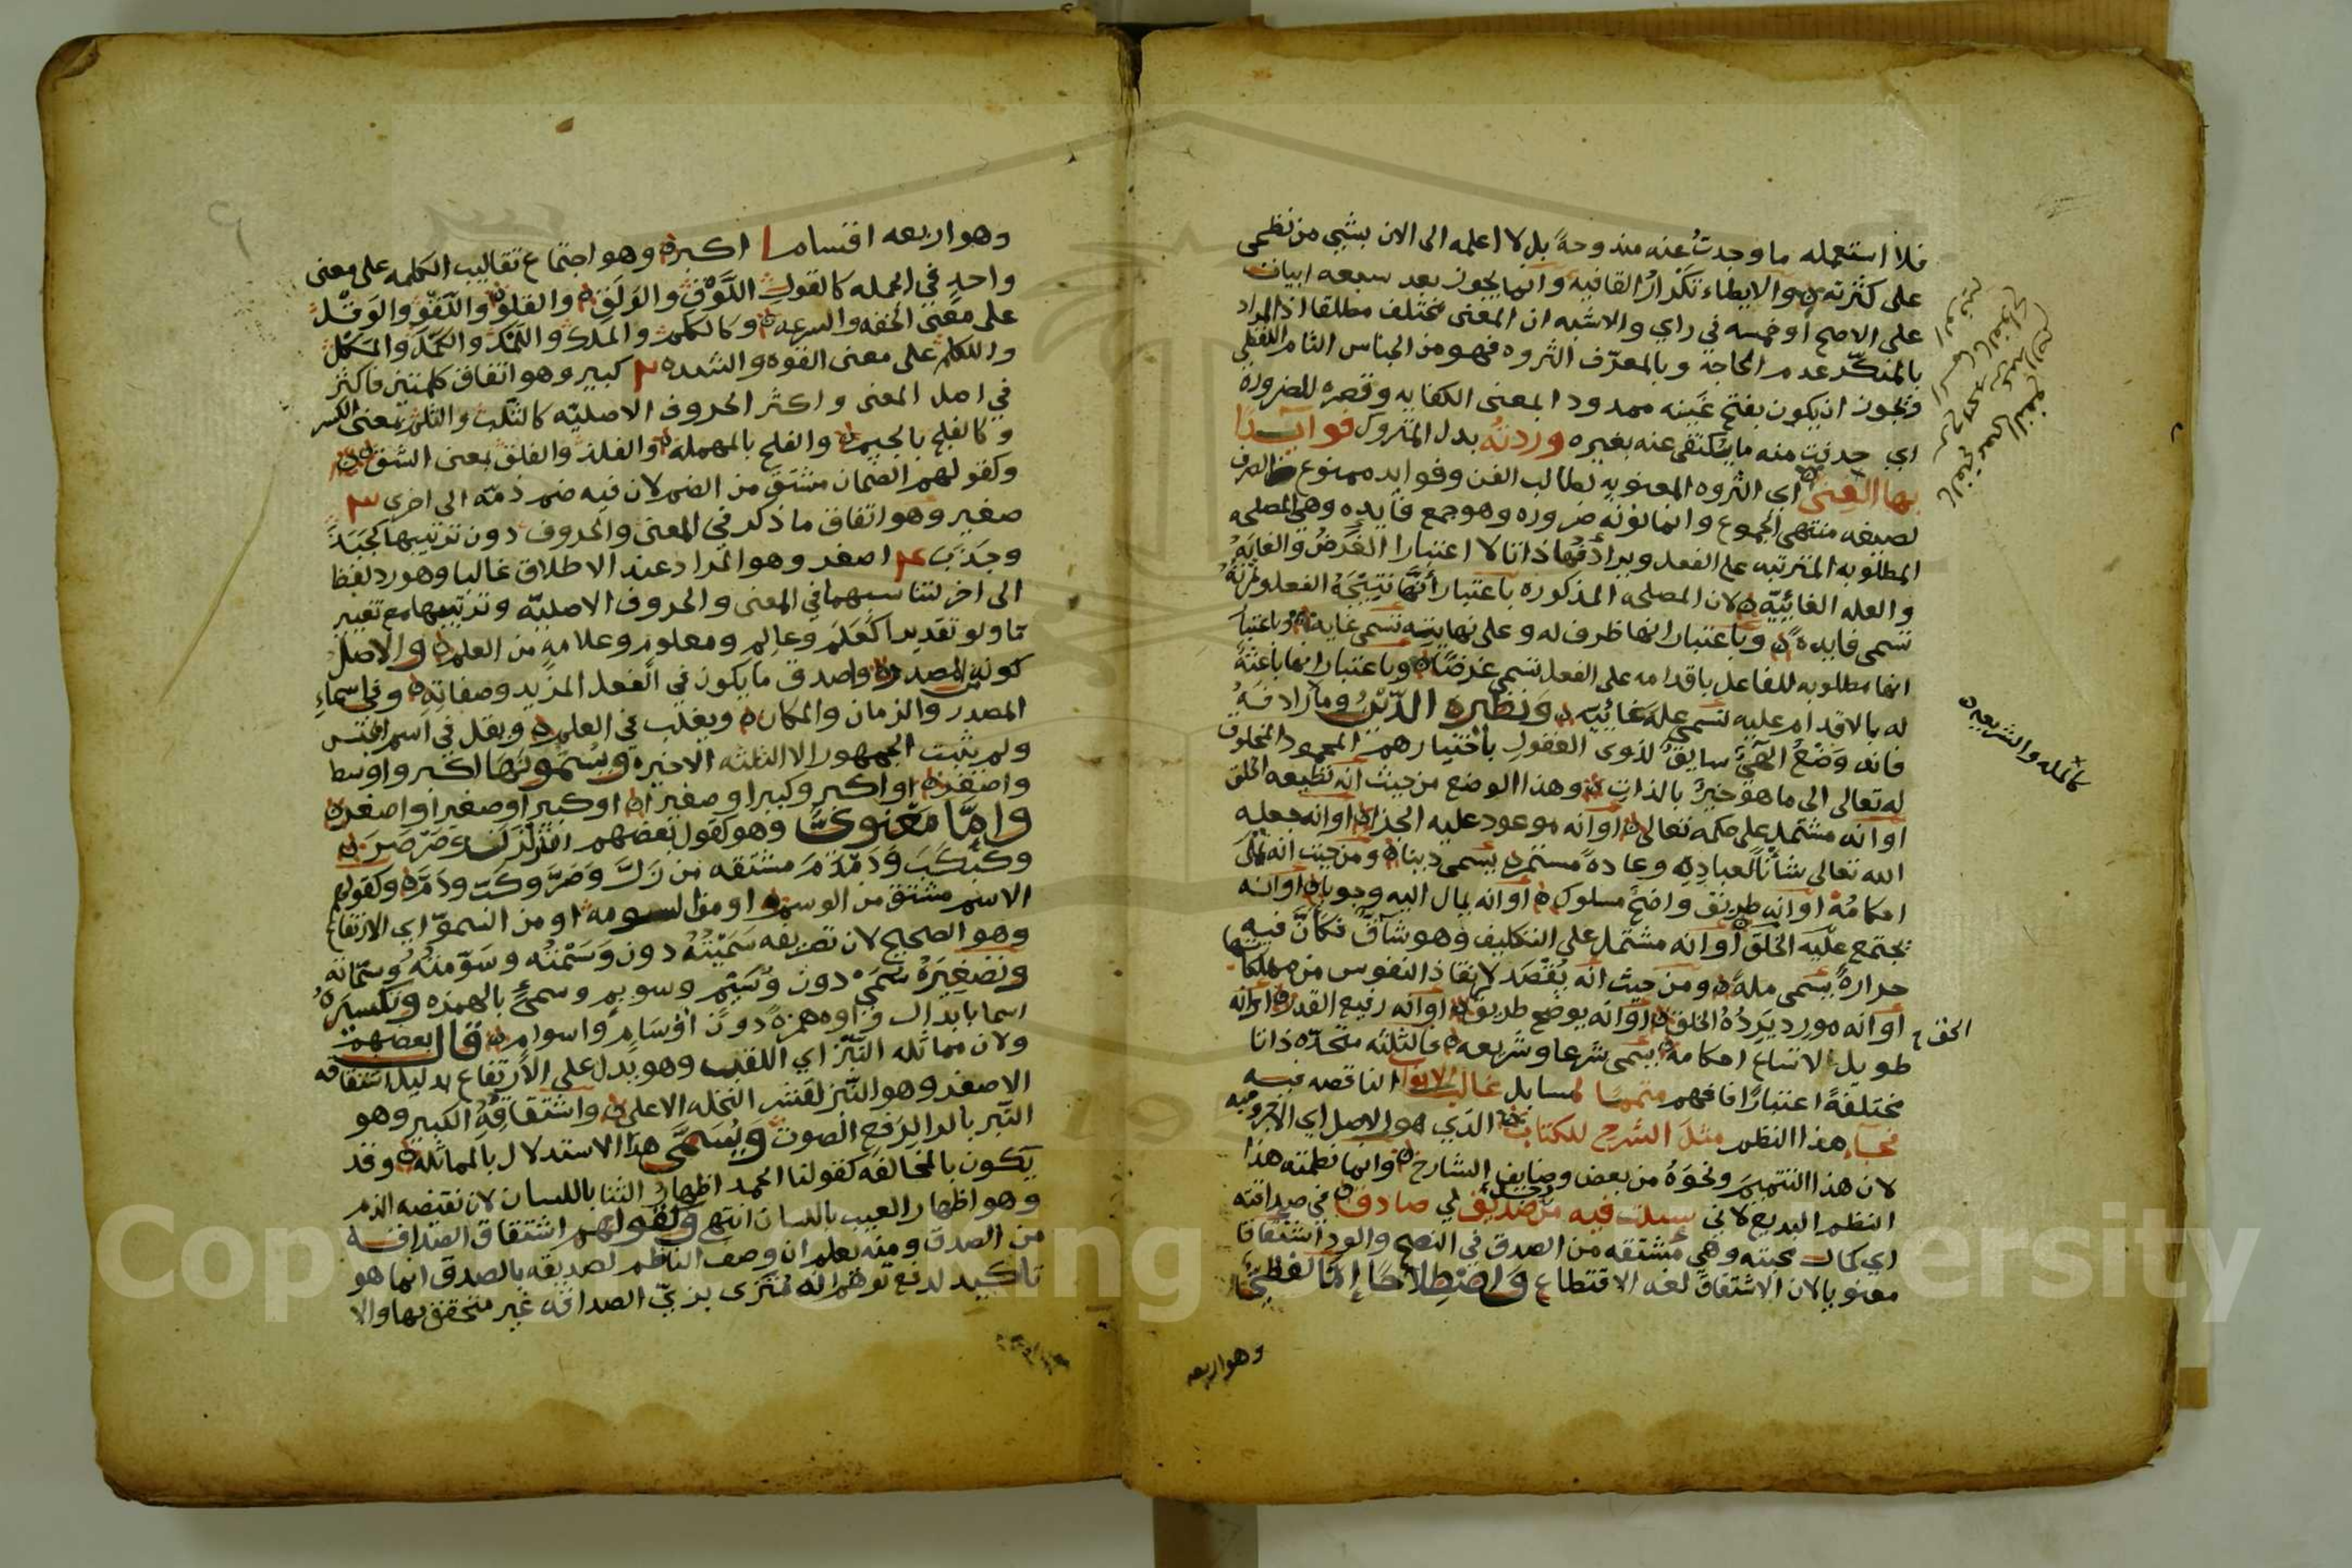 فلا استعمله ما وجدت عنه مندوحة بل لا اعلمه الى الان بشي من نظمي
على كثرته والايطاء تكرار القافيه وانما يجوز بعد سبعه ابيات
على الاصح او خمسه في راي والاشبه ان المعنى مختلف مطلقا اذ المراد
بالمنكر عدم الحاجة وبالمعرف الثروه فهو من الجناس التام اللفظي
ويجوز ان يكون بفتح غينه ممدودا بمعنى الكفايه وقصره للضروره
اي حديث منه ما يكتفى عنه بغيره وردته بدل المتروك فوايدا
بها الغنى اي الثروه المعنويه لطالب الفن وفوايد ممنوع الصرف
لصيغه منتهى الجموع وانما نونه ضروره وهو جمع فايده وهي المصلحه
المطلوبه المترتبه على الفعل ويرادفها ذاتا لا اعتبارا الغرض والغايه
والعله الغائيه لان المصلحه المذكوره باعتبار انها نتيجة الفعل وثمرته
تسمى فايده وباعتبار انها ظرف له وعلى نهايته تسمى غايه وباعتبار
انها مطلوبه للفاعل باقدامه على الفعل تسمى غرضا وباعتبار انها باعثة
له بالاقدام عليه تسمى علة غائيه ونظيره الدين وما رادفه
فانه وضع الهي سايق لذوى العقول باختيارهم المحمود المخلوق
له تعالى الى ما هو خير بالذات وهذا الوضع من حيث انه تطيعه الخلق
او انه مشتمل على حكمه تعالى او انه موعود عليه الجزا او انه جعله
الله تعالى شأنا لعباده وعادة مستمره يسمى دينا ومن حيث انه تملى
احكامه او انه طريق واضح مسلوك او انه يمال اليه وجوبا او انه
تجتمع عليه الخلق او انه مشتمل على التكليف وهو شاق فكان فيه
حرارة يسمى ملة ومن حيث انه يقصد لانقاذ النفوس من مهلكاتها
او انه مورد يرده الخلق او انه يوضح طريق الحق او انه رفيع القدر او انه
طويل لاتساع احكامه يسمى شرعا وشريعه فالثلثه متحده ذاتا
مختلفة اعتبارا فافهم متمما لمسايل غالب الابواب الناقصه فيه
فجاء هذا النظم مثل الشرح للكتاب الذي هو الاصل اي الاجروميه
لان هذا التتميم ونحوه من بعض وضايف الشارح وانما نظمته هذا
النظم البديع لاني سيلت فيه من صديق لي صادق في صداقته
اي كمال محبته وهي مشتقه من الصدق في النصح والود اشتقاقا
معنويا لان الاشتقاق لغه الاقتطاع واصطلاحا إما لفظي
وهو اربعه
كالمله والشريعه
وهو اربعه اقسام ١ اكبر وهو اجتماع تقاليب الكلمه على معنى
واحد في الجمله كالقول اللوق والولق والقلو واللقو والوقل
على معنى الخفه والسرعه وكالكلم والملك واللمك والكمل والمكل
واللكم على معنى القوه والشده ٢ كبير وهو اتفاق كلمتين فاكثر
في اصل المعنى واكثر الحروف الاصليه كالثلب والثلم بمعنى الكسر
وكالفلج بالجيم والفلح بالمهمله والفلذ والفلق بمعنى الشق
وكقولهم الضمان مشتق من الضم لان فيه ضم ذمة الى اخرى ٣
صغير وهو اتفاق ما ذكر في المعنى والحروف دون ترتيبها كجبذ
وجذب ٤ اصغر وهو المراد عند الاطلاق غالبا وهو رد لفظ
الى اخر لتناسبهما في المعنى والحروف الاصليه وترتيبها مع تغيير
ما ولو تقديرا كعلم وعالم ومعلوم وعلامه من العلم والاصل
كونه من المصدر واصدق ما يكون في الفعل المزيد وصفاته وفي اسماء
المصدر والزمان والمكان ويغلب في العلم ويقل في اسم الجنس
ولم يثبت الجمهور الا الثلثه الاخيره ويسمونها اكبر واوسط
واصغر او اكبر وكبيرا وصغيرا او كبيرا وصغيرا واصغر
وامّا معنوىّ وهو كقول بعضهم ان زلزل وصرصر
وكبكب ودمدم مشتقه من زل وصر وكب ودم وكقولهم
الاسم مشتق من الوسم او من السومه او من السمو اي الارتفاع
وهو الصحيح لان تصريفه سميته دون وسمته وسومته وسماته
وتصغيره سمي دون وسيم وسويم وسمئ بالهمزه وتكسيره
اسما بابدال واوه همزة دون اوسام واسوام قال بعضهم
ولان مماثله النبز اي اللقب وهو يدل على الارتفاع بدليل اشتقاقه
الاصغر وهو النبز لقشر النخله الاعلى واشتقاقه الكبير وهو
النبر بالرا لرفع الصوت ويسمى هذا الاستدلال بالمماثله وقد
يكون بالمخالفه كقولنا الحمد اظهار الثنا باللسان لان نقيضه الذم
وهو اظهار العيب باللسان انتهى وكقولهم اشتقاق الصداقه
من الصدق ومنه يعلم ان وصف الناظم لصديقه بالصدق انما هو
تاكيد لدفع توهم انه متزى بزي الصداقه غير متحقق بها والا